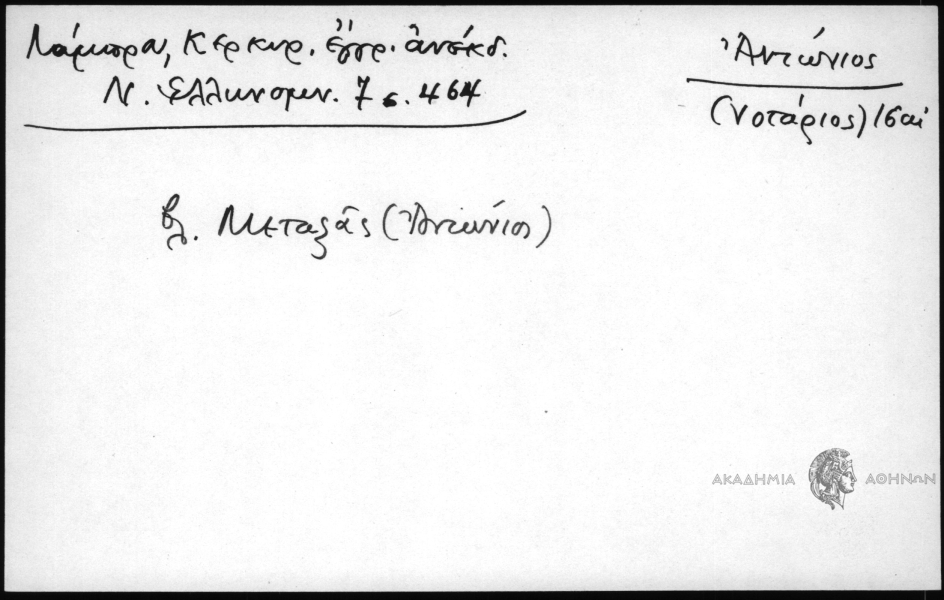 Λάμπρου, Κερκυρ. ἔγγρ. ἀνέκδ.
Ν. Ἑλληνομν. 7 σ. 464
Ἀντώνιος
(νοτάριος) 16 αἰ
βλ. Μεταξᾶς (Ἀντώνιος)
ΑΚΑΔΗΜΙΑ ΑΘΗΝΩΝ